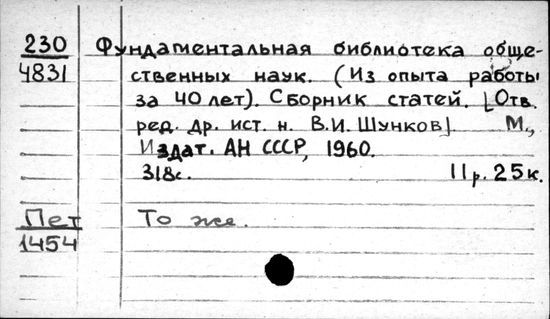 230 Фундаментальная библиотека обще-
4831 ственных наук. (Из опыта работы
за 40 лет). Сборник статей. [Отв.
ред. др. ист. н. В.И. Шунков] М.,
Издат. АН СССР, 1960.
318с. 11р. 25к.
Пет То же.
1454